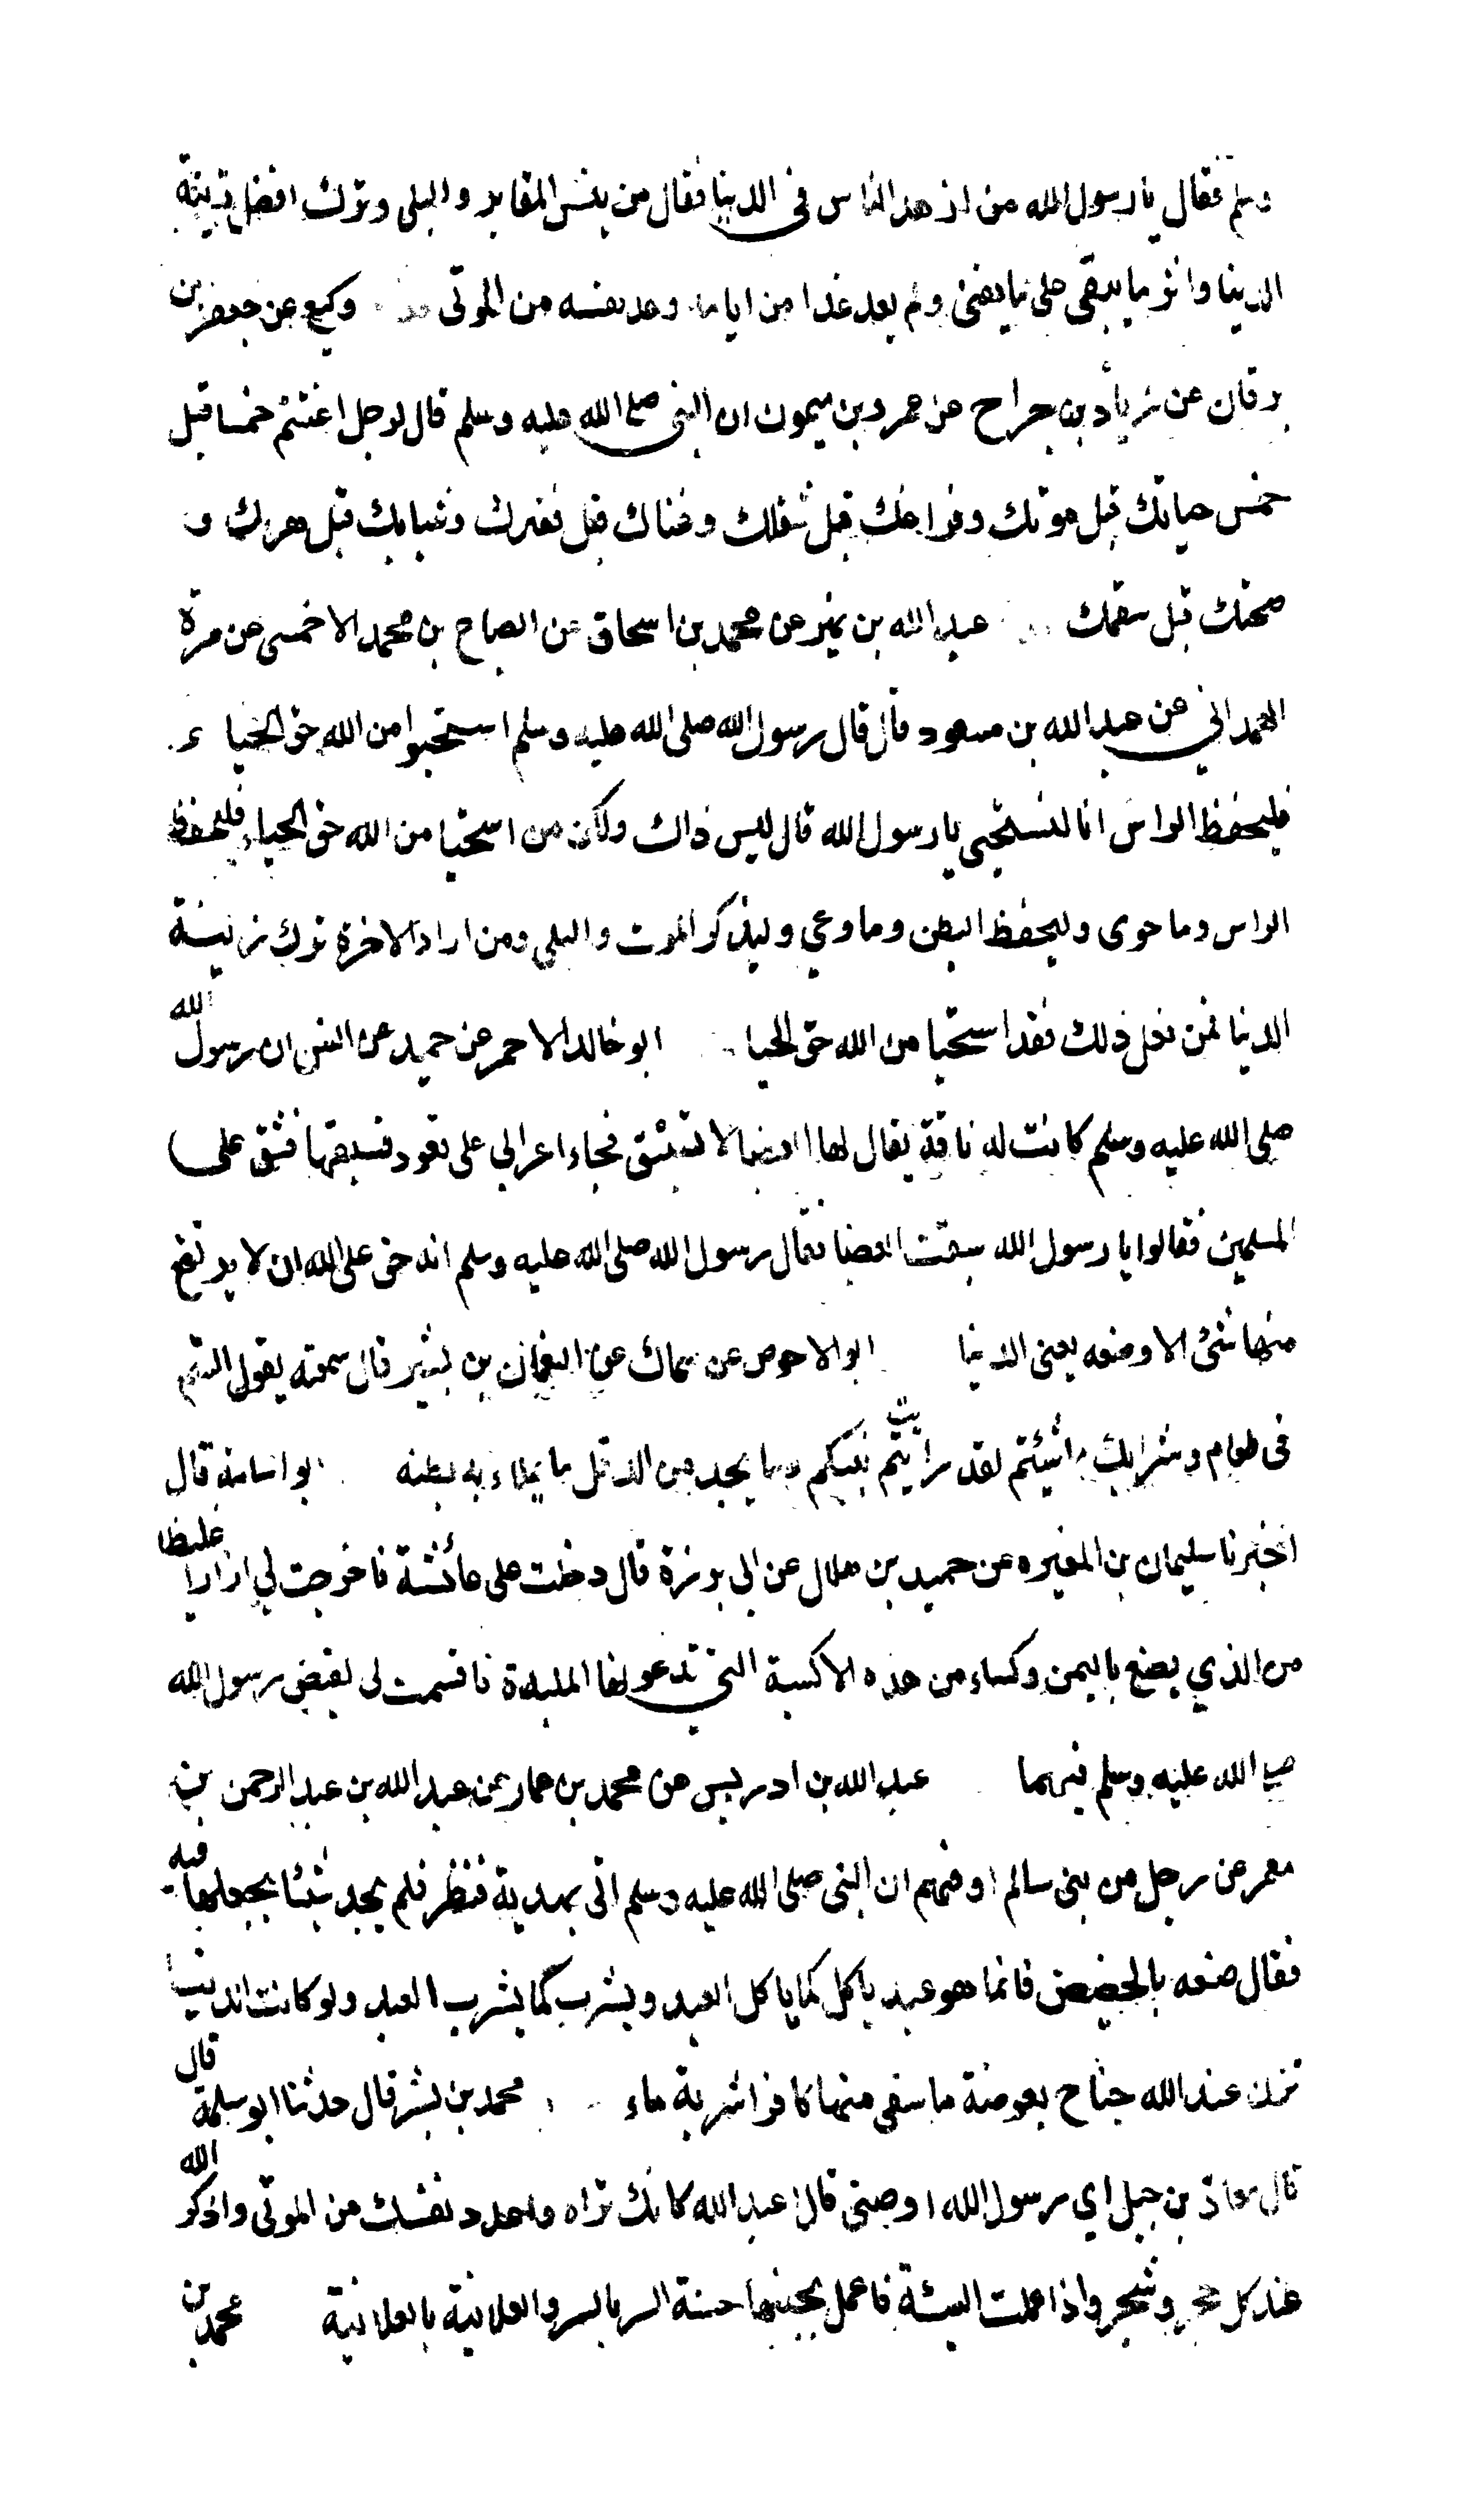 وسلم فقال يا رسول الله من ازهد الناس في الدنيا فقال من ينس المقابر والبلى وترك افضل زينة
الدنيا واثر ما يبقى على ما يفنى ولم يعد غدا من ايامه وعد نفسه من الموتى وكيع عن جعفر بن
برقان عن زياد بن جراح عن عمرو بن ميمون ان النبي صلى الله عليه وسلم قال لرجل اغتنم خمسا قبل
خمس حياتك قبل موتك وفراغك قبل شغلك وغناك قبل فقرك وشبابك قبل هرمك و
صحتك قبل سقمك عبد الله بن نمير عن محمد بن اسحاق عن الصباح بن محمد الاحمسي عن مرة
الهمداني عن عبد الله بن مسعود قال قال رسول الله صلى الله عليه وسلم استحيوا من الله حق الحياء
فليحفظ الراس انا لنستحيي يا رسول الله قال ليس ذاك ولكن من استحيا من الله حق الحياء فليحفظ
الراس وما حوى وليحفظ البطن وما وعى وليذكر الموت والبلى ومن اراد الاخرة ترك زينة
الدنيا فمن فعل ذلك فقد استحيا من الله حق الحيا ابو خالد الاحمر عن حميد عن انس ان رسول الله
صلى الله عليه وسلم كانت له ناقة يقال لها العضبا لا تسبق فجاء اعرابي على قعود فسبقها فشق على
المسلمين فقالوا يا رسول الله سبقت العضبا فقال رسول الله صلى الله عليه وسلم انه حق على الله ان لا يرتفع
منها شئ الا وضعه يعني الدنيا ابو الاحوص عن سماك عن النعمان بن بشير قال سمعته يقول الستم
في طعام وشراب ما شئتم لقد رايتم نبيكم وما يجد من الدقل ما يملاء به بطنه ابو اسامة قال
اخبرنا سليمان بن المغيره عن حميد بن هلال عن ابي بردة قال دخلت على عائشة فاخرجت لي ازارا غليظا
من الذي يصنع باليمن وكساء من هذه الاكسية التي تدعونها الملبدة فاقسمت لي لقبض رسول الله
صلى الله عليه وسلم فيهما عبد الله بن ادريس عن محمد بن عمار عن عبد الله بن عبد الرحمن بن
معمر عن رجل من بني سالم او فهم ان النبي صلى الله عليه وسلم اتى بهدية فنظر فلم يجد شيئا يجعلها فيه
فقال ضعه بالحضيض فانما هو عبد ياكل كما ياكل العبد ويشرب كما يشرب العبد ولو كانت الدنيا
تزن عند الله جناح بعوضة ما سقى منها كافرا شربة ماء محمد بن بشر قال حدثنا ابو سلمة قال
قال معاذ بن جبل اي رسول الله اوصني قال اعبد الله كانك تراه واعدد نفسك من الموتى واذكر الله
عند كل حجر وشجر واذا عملت السيئة فاعمل بجنبها حسنة السر بالسر والعلانية بالعلانية محمد بن